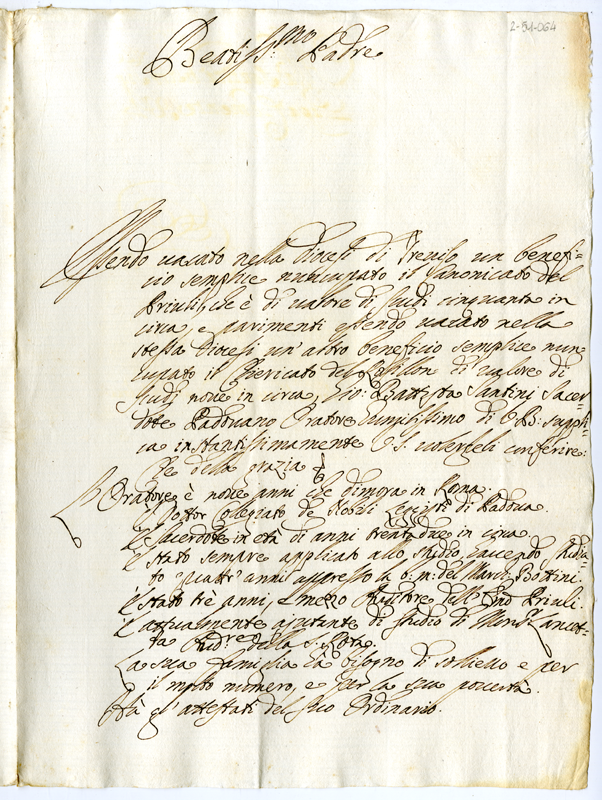 2-54-064
Beatiss.mo Padre
Essendo uacato nella Diocesi di Treuiso un benefi-
cio semplice nuncupato il Canonicato del
Priuli, che è di ualore di scudi cinquanta in
circa, e parimenti essendo uacato nella
stessa Diocesi un'altro beneficio semplice nun
cupato il Chiericato del di ualore di
scudi noue in circa, Gio: Battista Santini Sacer-
dote Padouano Oratore humilissimo di V. B. suppli-
ca instantissimamente V. S. uolerglieli conferire
Che della grazia
L'Oratore è noue anni che dimora in Roma.
È Dottor Colegiato de Nobili Legisti di Padoua.
È Sacerdote in età di anni trenta due in circa.
È stato sempre applicato allo studio, hauendo studia-
to quattr'anni appresso la b: m: del Bottini.
È stato trè anni, e mezo Auditore dell' Priuli.
È attualmente aiutante di studio di Mons.r Lancet-
ta Aud.re della S. Rota.
La sua famiglia hà bisogno di solleuo e per
il molto numero, e per la sua pouertà.
Hà gl'attestati del suo Ordinario.